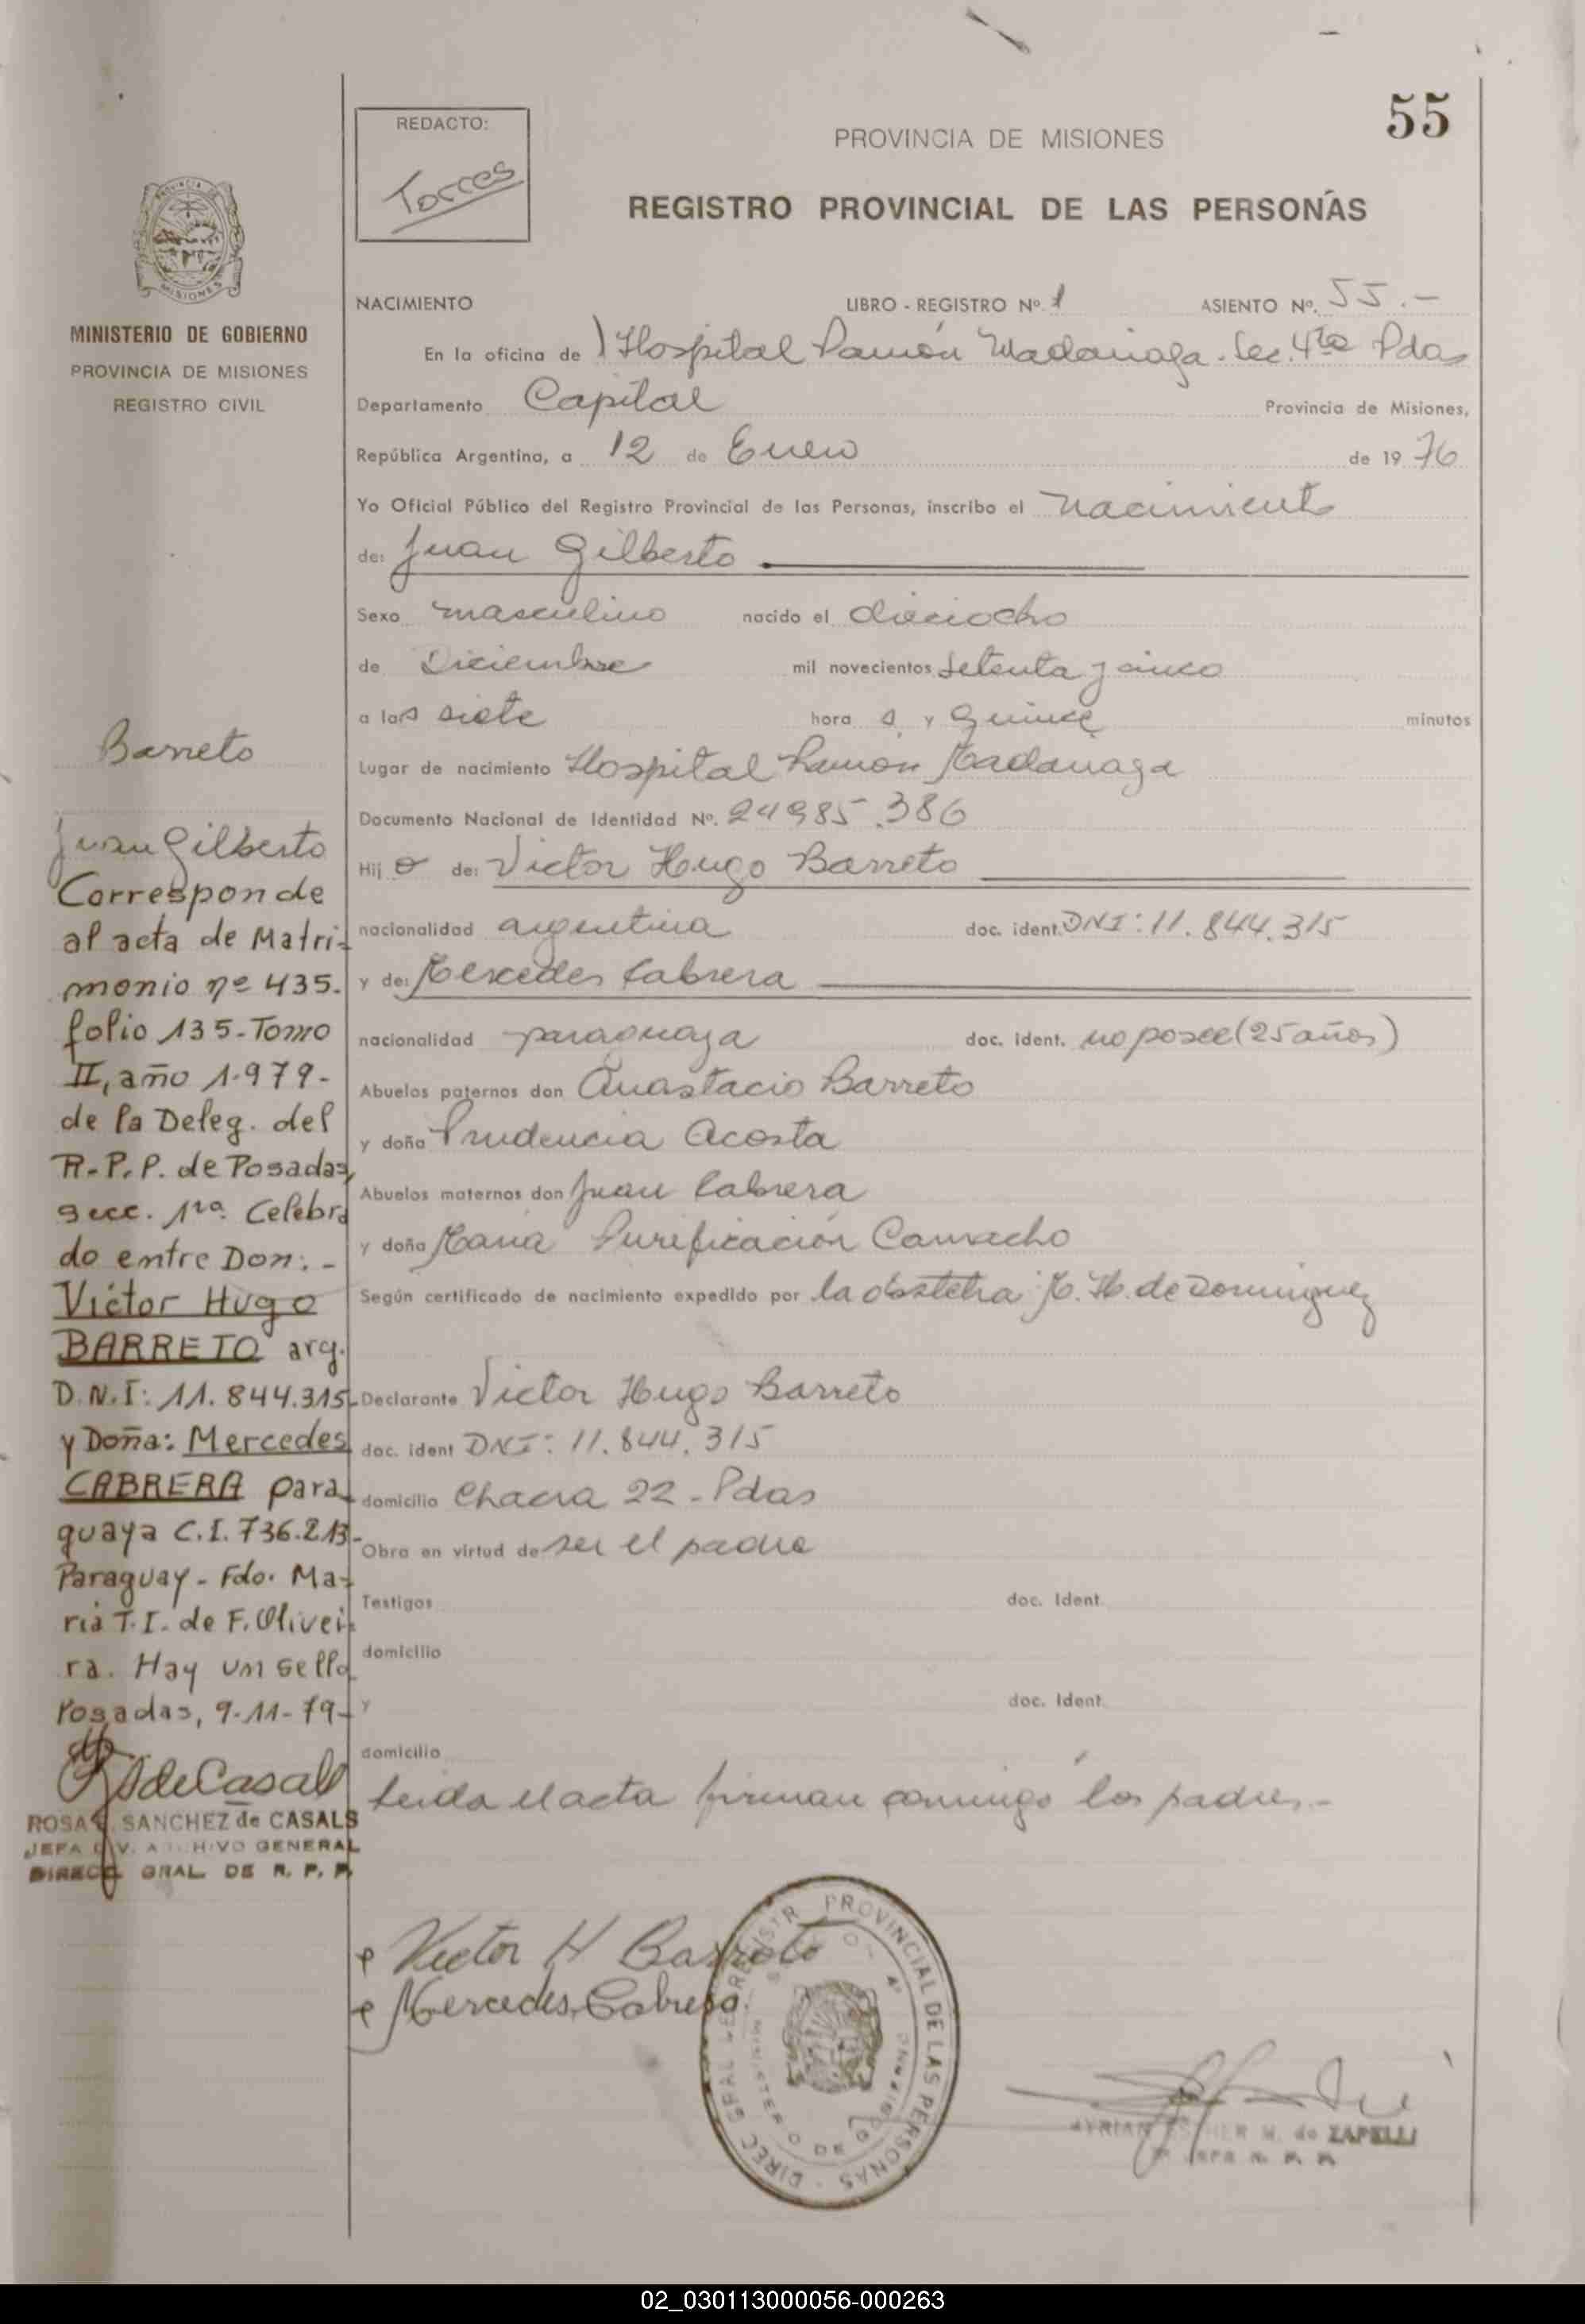 55
REDACTO:
Torres
PROVINCIA DE MISIONES
REGISTRO PROVINCIAL DE LAS PERSONAS
MINISTERIO DE GOBIERNO
PROVINCIA DE MISIONES
REGISTRO CIVIL
NACIMIENTO LIBRO - REGISTRO Nº 1 ASIENTO Nº. 55.-
En la oficina de Hospital Ramón Madariaga. Sec. 4ta Pdas
Departamento Capital Provincia de Misiones,
República Argentina, a 12 de Enero de 1976
Yo Oficial Público del Registro Provincial de las Personas, inscribo el nacimiento
de: Juan Gilberto
Sexo masculino nacido el dieciocho
de Diciembre mil novecientos setenta y cinco
a las siete hora s y quince minutos
Lugar de nacimiento Hospital Ramón Madariaga
Documento Nacional de Identidad Nº. 24985.386
Hijo de: Victor Hugo Barreto
nacionalidad argentina doc. ident. DNI: 11.844.315
y de: Mercedes Cabrera
nacionalidad paraguaya doc. ident. no posee (25 años)
Abuelos paternos don Anastacio Barreto
y doña Prudencia Acosta
Abuelos maternos don Juan Cabrera
y doña Maria Purificación Camacho
Según certificado de nacimiento expedido por la obstetra M. H. de Dominguez
Declarante Victor Hugo Barreto
doc. ident DNI: 11.844.315
domicilio Chacra 22 - Pdas
Obra en virtud de ser el padre
Testigos doc. Ident.
domicilio
y doc. Ident.
domicilio
Leida el acta firman conmigo los padres.-
Barreto
Juan Gilberto
Corresponde
al acta de Matri-
monio nº 435.
folio 135-Tomo
II, año 1.979-
de la Deleg. del
R.P.P. de Posadas,
secc. 1ra. Celebra
do entre Don:.-
Victor Hugo
BARRETO arg.
D.N.I: 11.844.315
y Doña: Mercedes
CABRERA para-
guaya C.I. 736.213-
Paraguay - Fdo. Ma-
ria T.I. de F. Olivei-
ra. Hay un sello
Posadas, 9-11-79-
de Casals
ROSA SANCHEZ de CASALS
JEFA DIV. ARCHIVO GENERAL
DIRECC GRAL. DE R. P. P.
Victor H Barreto
Mercedes Cabrera
DIREC GRAL DE REGISTR PROVINCIAL DE LAS PERSONAS
MINISTERIO DE GOBIERNO
MYRIAN ESTHER M. de ZAPELLI
02_030113000056-000263